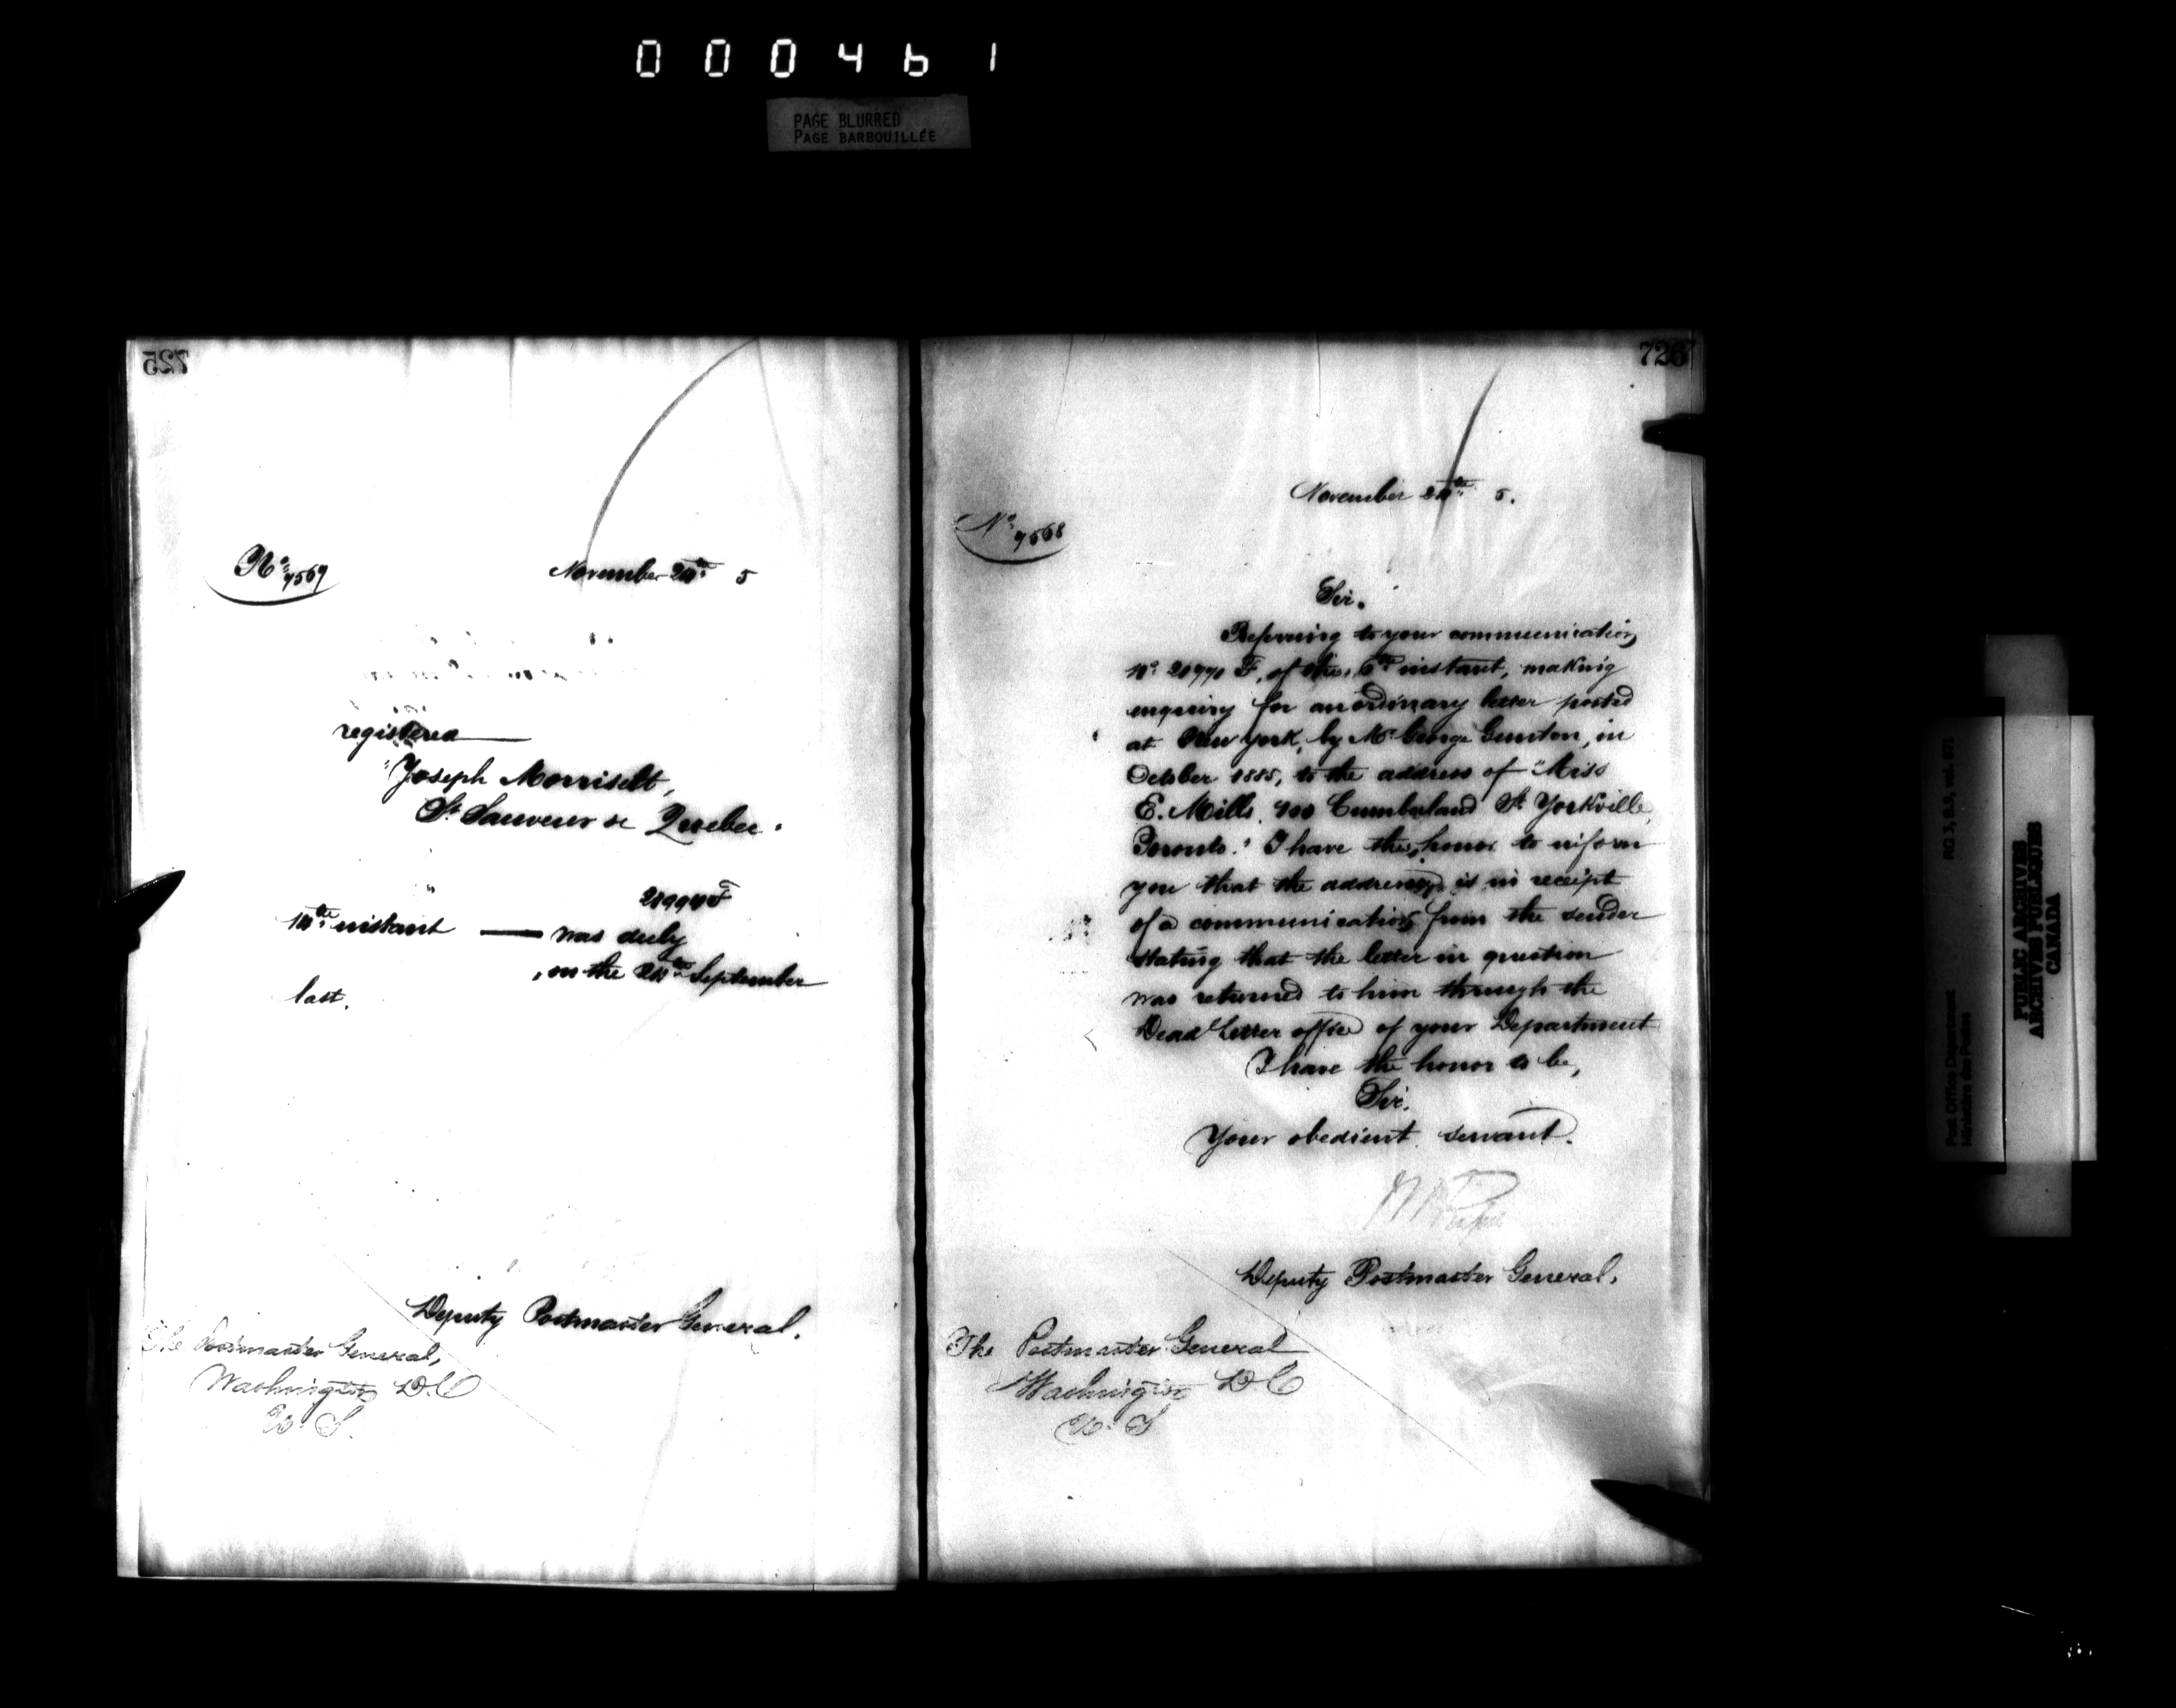 000461
PAGE BLURRED
PAGE BARBOUILLÉE
725
No. 7567
November 24th 5
registered
"Joseph Morrisett,
St Sauveur de Quebec."
14th instant — was duly
, on the 24th September
last.
Deputy Postmaster General.
The Postmaster General,
Washington D.C
U. S.
726
November 24th 5.
No. 7568
Sir.
Referring to your communication
No. F, of the 6th instant, making
enquiry for an ordinary letter posted
at New York, by Mr George Gunton, in
October 1885, to the address of "Miss
E. Mills, Cumberland St Yorkville,
Toronto." I have the honor to inform
you that the addressee is in receipt
of a communication from the sender
stating that the letter in question
was returned to him through the
Dead Letter office of your Department
I have the honor to be,
Sir,
Your obedient servant.
Deputy Postmaster General.
The Postmaster General
Washington D C
U. S
Post Office Department
Ministère des Postes
PUBLIC ARCHIVES
ARCHIVES PUBLIQUES
CANADA